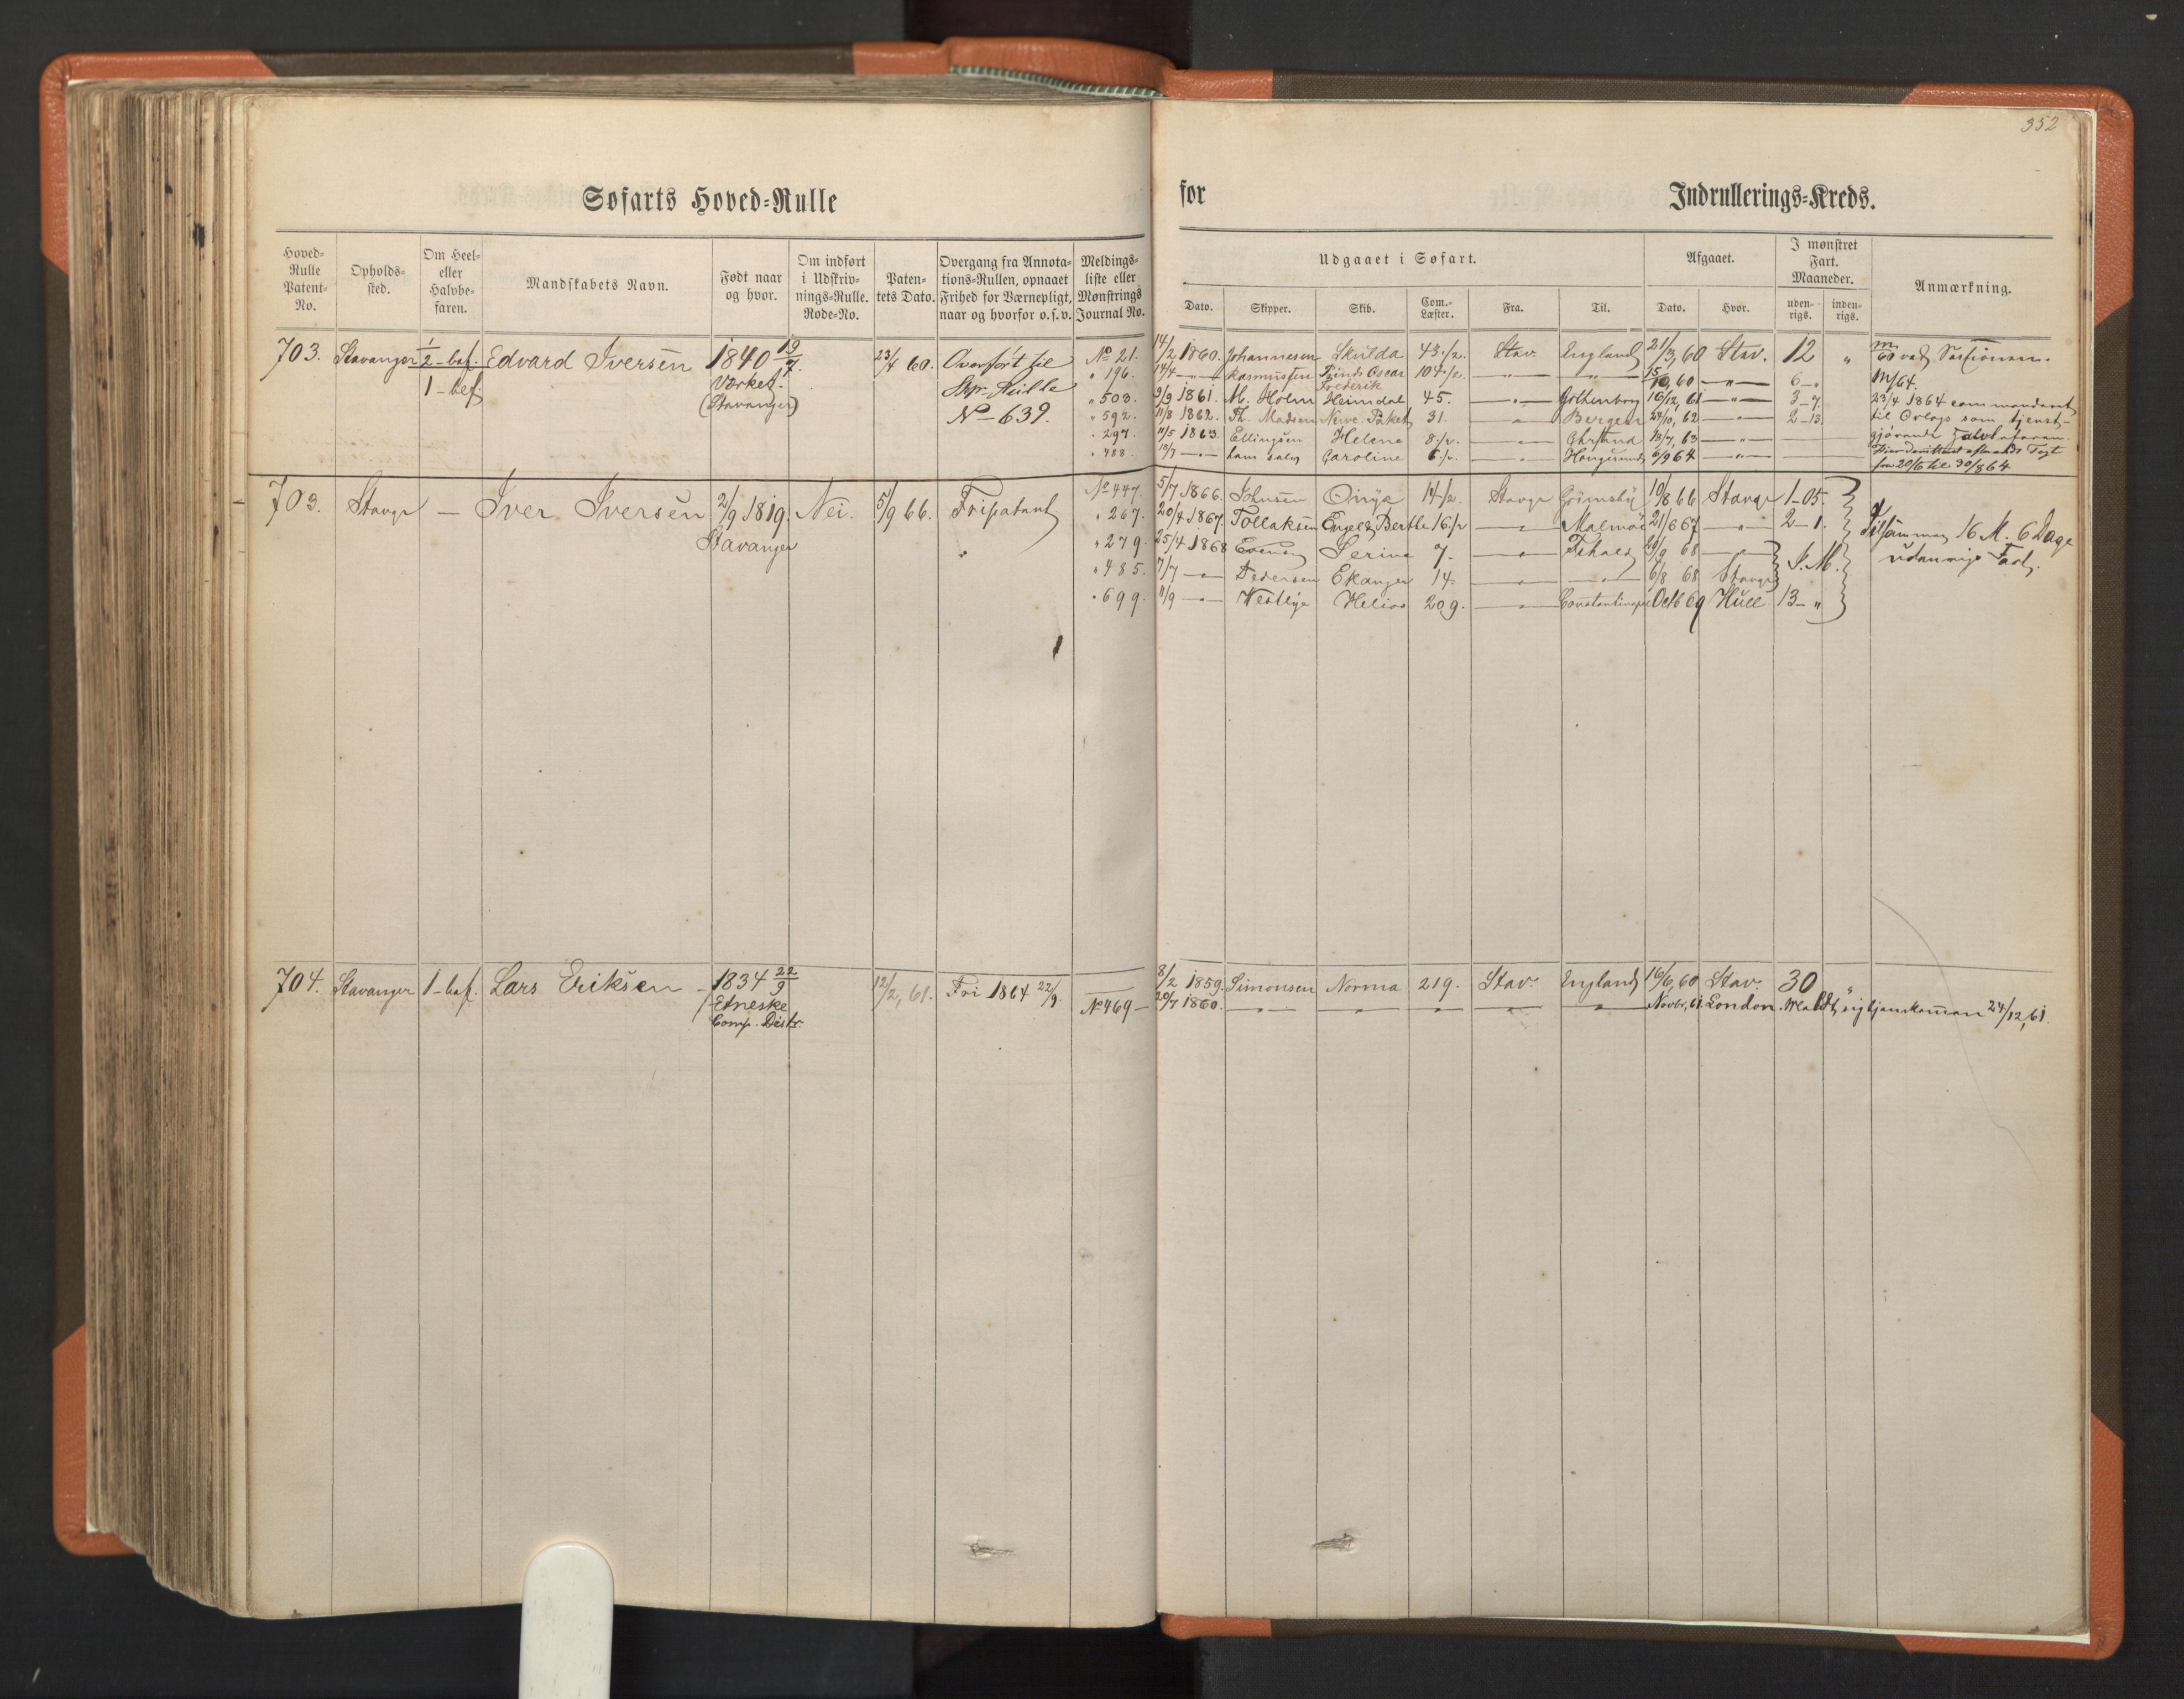 352
Søfarts Hoved-Rulle
for Indrullerings-Kreds.
Hoved-Rulle Patent-No.
Opholds-sted.
Om Heel- eller Halvbe-faren.
Mandskabets Navn.
Født naar og hvor.
Om indført i Udskriv-nings-Rulle. Rode-No.
Paten-tets Dato.
Overgang fra Annota-tions-Rullen, opnaaet Frihed for Værnepligt, naar og hvorfor o.s.v.
Meldings-liste eller Mønstrings Journal No.
Udgaaet i Søfart.
Dato. Skipper. Skib. Com.-Læster. Fra. Til.
Afgaaet.
Dato. Hvor.
I mønstret Fart. Maaneder.
uden-rigs. inden-rigs.
Anmærkning.
703. Stavanger 1/2-bef. Edvard Iversen 1840 19/7 23/4 60. Overført til No 21. 14/2 1860. Johannesen Skulda 43 1/2. Stav. England 21/3, 60 Stav. 12 "
1-bef. Værket. (Stavanger) Skpr-Rulle No-639.
" 196. 14/4 -"- Rasmussen Prinds Oscar Frederik 104 1/2. -"- -"- 15/10, 60 -"- 6-"
" 503. 9/9 1861. M. Holm Heimdal 45. -"- Gothenborg 16/12, 61 -"- 3-7
" 592. 11/8 1862. Th. Madsen Newc. Paket 31. -"- Bergen 24/10, 62 -"- 2-13
" 297. 11/5 1863. Ellingsen Helene 8 1/2. -"- Chrsand 18/7, 63 -"-
" 488. 18/7 -"- ham selv Caroline 6 1/2. -"- 6/9 64 -"-
m/60 ved Sessionen.
M/64.
23/4 1864 commanderet
til Orlogs som tjenst-
gjørende
fra 20/6 til 30/8 64
703. Stavgr - Iver Iversen 2/9 1819. Nei. 5/9 66. Fripatent No 447. 5/7 1866. Johnsen Onya 14 1/2. Stavgr Grimsby 10/8 66 Stavgr 1-05.
Stavanger
" 267. 20/4 1867. Tollaksen Engel Berthe 16 1/2 -"- Malmøe 21/6 67 -"- 2-1.
" 279. 25/4 1868 Evensen Serine 7. -"- 68 -"-
" 485. 7/7 -"- Pedersen Ekanger 14. -"- -"- 6/8 68 Stavgr I. M.
" 699. 11/9 -"- Westbye Helios 209. -"- Constantinopel Oct 69 Hull 13-"
Tilsammen 16 M. 6 Dage
udenrigs Fart.
704. Stavanger 1-bef. Lars Eriksen - 1834 22/9 12/2, 61. Fri 1864 22/9. 8/2 1859. Simonsen Norma 219. Stav. England 16/6, 60 Stav. 30 "
Etneske Comp. Distr.
No 469- 20/7 1860. -"- -"- -"- -"- -"- Novbr, 61. London. Meldt sig hjemkommen 24/12, 61.